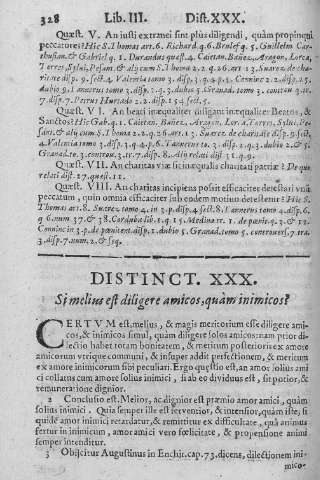 328 Lib. III. Dist. XXX.
Quæst. V. An iusti extranei sint plus diligendi, quàm propinqui
peccatores? Hic S. Thomas art. 6. Richard. q. 6. Brulef q. 5. Guillelm Car-
thusian. & Gabriel q. 1. Durandus quæst. 4. Caietan. Bañez, Aragon, Lorca,
Torres, Sylui, Pesant. & aly cum S. Thoma 2. 2. q. 26. art. 13. Suarez de cha-
ritate disp. 9. sect. 4. Valentia tomo 3. disp. 3. q. 4. p. 5. Conninc 2. 2. disp. 25.
dubio 9. Tannerus tomo 3. disp. 2. q. 3. dubio 2. Granad. tomo 3. contron. 3.
tr. 7. disp. 7. Petrus Hurtado 2. 2. disp. 154. sect. 5.
Quæst. VI. An beati inæqualiter diligant inæqualiter Beatos, &
Sanctos? Hic Gab. q. 1. Caietan. Bañez, Aragon, Lorca, Torres, Sylui. Pe-
sant. & aly cum S. Thoma 2. 2. q. 26. art. 13. Suarez de charitate disp. 9. sect.
4. Valentia tomo 3. disp. 3. q. 4. p. 6. Tannerus to. 3. disp. 2. q. 3. dubio 2. &
Granad. to 3. contron. 3. tr. 7. disp. 8. Aly relati disp. 31. q. 9.
Quæst. VII. An charitas viæ sit inæqualis charitati patriæ? De quo
relati disp. 27. quæst. 12.
Quæst. VIII. An charitas incipiens possit efficaciter detestari vnum
peccatum, quin omnia efficaciter sub eodem motiuo detestetur? Hic S.
Thomas art. 8. Suarez tomo 4. in 3. p. disp. 4. sect. 8. Tannerus tomo 4. disp. 6.
q. 6. num. 37. & 38. Corduba lib. 1. q. 15. Medina tr. 1. de pœnit. q. 3. & 12.
Conninc in 3. p. de pœnitent. disp. 2. dubio 5. Granad. tomo 5. controuers. 7. tra.
3. disp. 7. num. 2. & seq.
DISTINCT. XXX.
Si melius est diligere amicos, quàm inimicos?
CERTVM est, melius, & magis meritorium esse diligere ami-
cos, & inimicos simul, quàm diligere solos amicos: nam prior di-
lectio habet totam bonitatem, & meritum posterioris ex amore
amicorum vtrique communi, & insuper addit perfectionem, & meritum
ex amore inimicorum sibi peculiari. Ergo quæstio est, an amor solius ami-
ci collatus cum amore solius inimici, si ab eo diuidus est, sit potior, &
remuneratione dignior.
2 Conclusio est. Melior, ac dignior est præmio amor amici, quàm
solius inimici. Quia semper ille est feruentior, & intensior, quàm iste; si
quidẽ amor inimici retardatur, & remittitur ex difficultate, quâ animus
fertur in inimicum, amor amici vero fœlicitate, & propensione animi
semper intenditur.
3 Obijcitur Augustinus in Enchir. cap. 73. dicens, dilectionem ini-
mico-